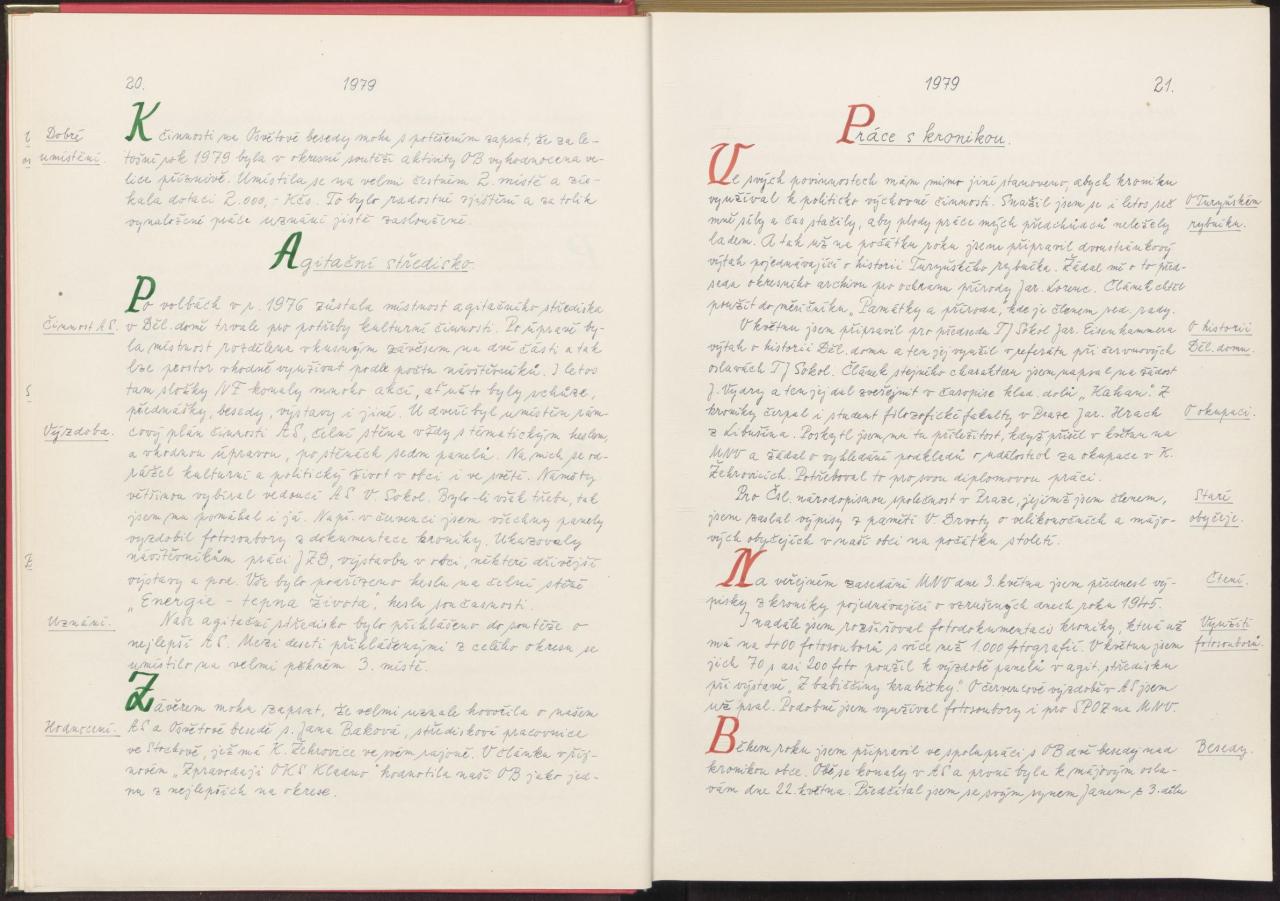 20.
1979
Dobré
umístění.
K činnosti na Osvětové besedy mohu s potěšením zapsat, že za le-
tošní rok 1979 byla v okresní soutěži aktivity OB vyhodnocena ve-
lice příznivě. Umístila se na velmi čestném 2. místě a zís-
kala dotaci 2.000,- Kčs. To bylo radostné zjištění a za tolik
vynaložené práce uznání jistě zasloužené.
Agitační středisko.
Po volbách v r. 1976 zůstala místnost agitačního střediska
Činnost AS.
v Děl. domě trvale pro potřeby kulturní činnosti. Po úpravě by-
la místnost rozdělena vkusným závěsem na dvě části a tak
lze prostor vhodně využívat podle počtu návštěvníků. I letos
tam složky NF konaly mnoho akcí, ať už to byly schůze,
přednášky, besedy, výstavy i jiné. U dveří byl umístěn rám-
Výzdoba.
cový plán činnosti AS, čelní stěna vždy s tématickým heslem,
a vhodnou úpravou, po stěnách sedm panelů. Na nich se od-
rážel kulturní a politický život v obci i ve světě. Náměty
většinou vybíral vedoucí AS V. Sokol. Bylo-li však třeba, tak
jsem mu pomáhal i já. Např. v červenci jsem všechny panely
vyzdobil fotosoubory z dokumentace kroniky. Ukazovaly
návštěvníkům práci JZD, výstavbu v obci, některé dřívější
výstavy a pod. Vše bylo podřízeno heslu na čelní stěně
„Energie - tepna života", heslu současnosti.
Uznání.
Naše agitační středisko bylo přihlášeno do soutěže o
nejlepší AS. Mezi deseti přihlášenými z celého okresu se
umístilo na velmi pěkném 3. místě.
Závěrem mohu zapsat, že velmi uznale hovořila o našem
Hodnocení.
AS a Osvětové besedě s. Jana Baková, středisková pracovnice
ve Stochově, jež má K. Žehrovice ve svém rajoně. V článku v říj-
novém „Zpravodaji OKS Kladno" hodnotila naši OB jako jed-
nu z nejlepších na okrese.
1979
21.
Práce s kronikou.
Ve svých povinnostech mám mimo jiné stanoveno, abych kroniku
využíval k politicko výchovné činnosti. Snažil jsem se i letos seč
O Turyňském
rybníku.
mně síly a čas stačily, aby plody práce mých předchůdců neležely
ladem. A tak už na počátku roku jsem připravil dvoustránkový
výtah pojednávající o historii Turyňského rybníka. Žádal mě o to před-
seda okresního archivu pro ochranu přírody Jar. Lorenc. Článek chtěl
použít do měsíčníku „Památky a příroda", kde je členem red. rady.
V květnu jsem připravil pro předsedu TJ Sokol Jar. Eisenhammera
O historii
Děl. domu.
výtah o historii Děl. domu a ten jej využil v referátu při červnových
oslavách TJ Sokol. Článek stejného charakteru jsem napsal na žádost
J. Vydry a ten jej dal zveřejnit v časopise klad. dolů „Kahan". Z
kroniky čerpal i student filozofické fakulty v Praze Jar. Hrach
O okupaci.
z Libušína. Poskytl jsem mu tu příležitost, když přišel v květnu na
MNV a žádal o vyhledání podkladů o událostech za okupace v K.
Žehrovicích. Potřeboval to pro svou diplomovou práci.
Pro Čsl. národopisnou společnost v Praze, jejímž jsem členem,
Staré
obyčeje.
jsem zaslal výpisy z pamětí V. Drvoty o velikonočních a májo-
vých obyčejích v naší obci na počátku století.
Na veřejném zasedání MNV dne 3. května jsem přednesl vý-
Čtení.
pisky z kroniky pojednávající o vzrušených dnech roku 1945.
I nadále jsem rozšiřoval fotodokumentaci kroniky, která už
Využití
fotosouborů.
má na 400 fotosouborů s více než 1.000 fotografií. V květnu jsem
jich 70 s asi 200 foto použil k výzdobě panelů v agit. středisku
při výstavě „Z babiččiny krabičky". O červencové výzdobě v AS jsem
už psal. Podobně jsem využíval fotosoubory i pro SPOZ na MNV.
Během roku jsem připravil ve spolupráci s OB dvě besedy nad
Besedy.
kronikou obce. Obě se konaly v AS a první byla k májovým osla-
vám dne 22. května. Předčítal jsem se svým synem Janem z 3. dílu